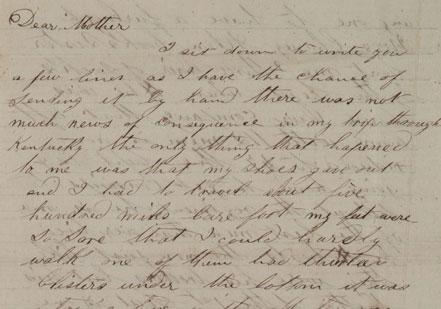 Dear Mother
I sit down to write you
a few lines as I have the chance of
sending it by hand there was not
much news of consequence in my trip through
Kentucky the only thing that hapened
to me was that my shoes give out
and I had to travel about five
hundred miles bare foot my feet were
so sore that I could hardly
walk one of them had thirteen
blisters under the bottom it was